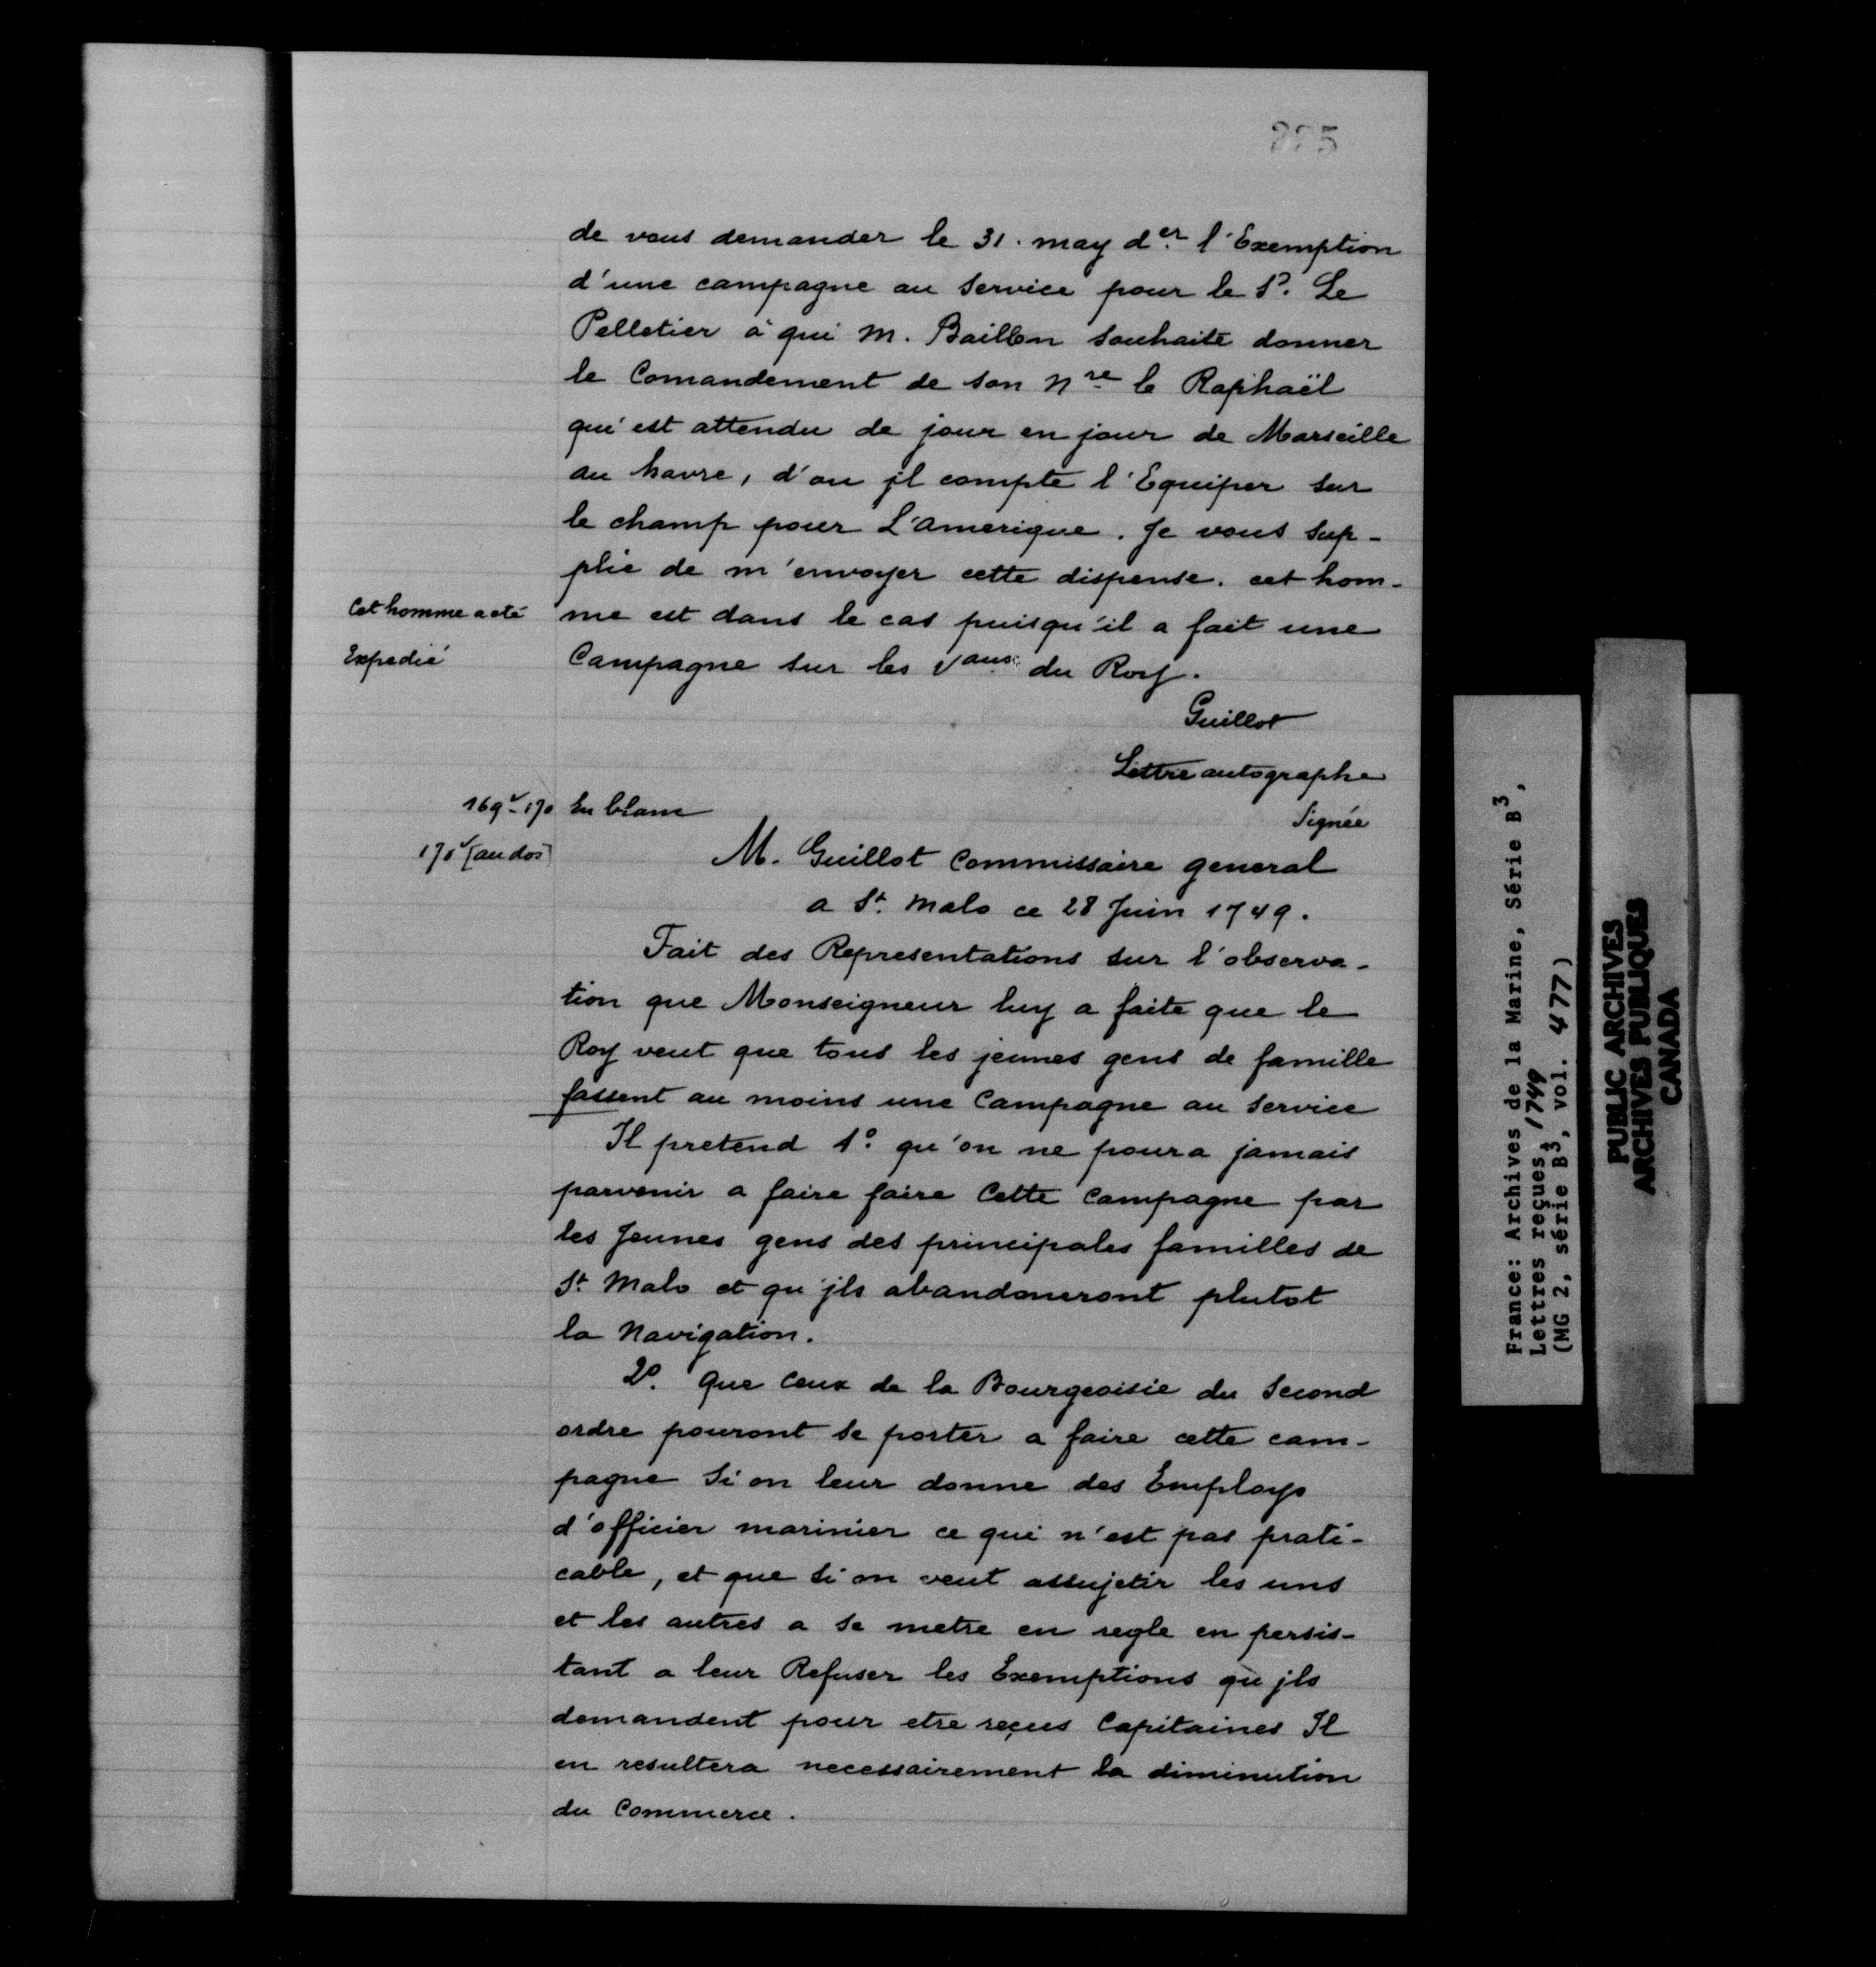 de vous demander le 31. may d.er l'Exemption
d'une campagne au service pour le S.r Le
Pelletier à qui M. Baillon souhaite donner
le Comandement de son N.re le Raphaël
qui est attendu de jour en jour de Marseille
au havre, d'ou jl compte l'Equiper sur
le champ pour L'amerique. Je vous sup-
plie de m'envoyer cette dispense. cet hom-
Cet homme a eté me est dans le cas puisqu'il a fait une
Expedié Campagne sur les v.aux du Roy.
Guillot
Lettre autographe
169v-170 En blanc Signée
170v [au dos] M. Guillot Commissaire general
a St. Malo ce 28 Juin 1749.
Fait des Representations sur l'observa-
tion que Monseigneur luy a faite que le
Roy veut que tous les jeunes gens de famille
fassent au moins une Campagne au service
Il pretend 1º. qu'on ne poura jamais
parvenir a faire faire Cette Campagne par
les Jeunes gens des principales familles de
St. Malo et qu'jls abandonneront plutot
la Navigation.
2º. Que Ceux de la Bourgeoisie du Second
ordre pouront se porter a faire cette cam-
pagne Si on leur donne des Employs
d'officier marinier ce qui n'est pas prati-
cable, et que si on veut assujetir les uns
et les autres a se metre en regle en persis-
tant a leur Refuser les Exemptions qu'jls
demandent pour etre reçus Capitaines Il
en resultera necessairement la diminution
du Commerce.
France: Archives de la Marine, Série B3,
Lettres reçues, 1749
(MG 2, série B3, vol. 477)
PUBLIC ARCHIVES
ARCHIVES PUBLIQUES
CANADA